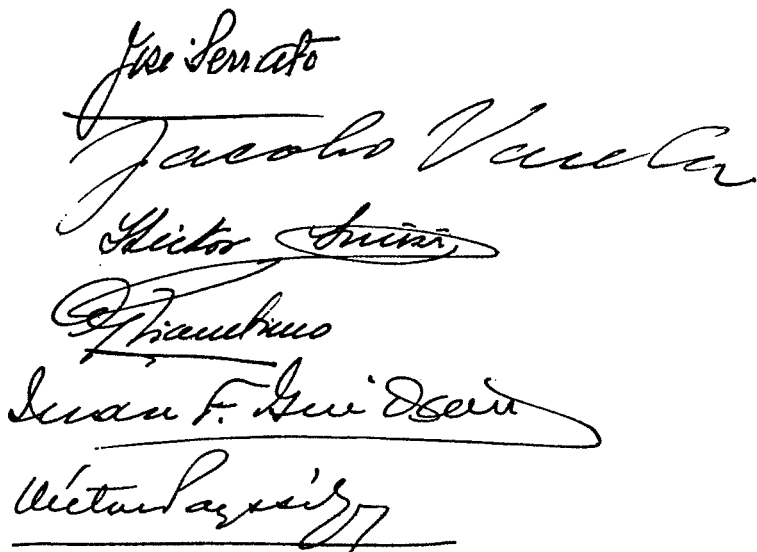 José Serrato
Jacobo Varela
Héctor Luisi
Juan F. Guichón
Víctor Payssé